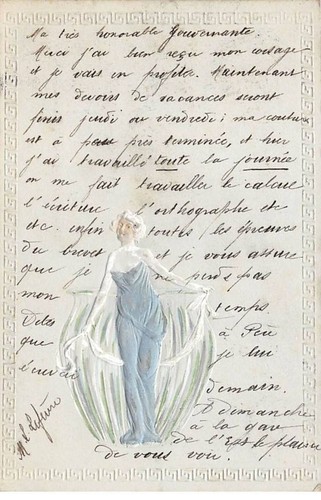 Ma très honorable Gouvernante.
Merci j'ai bien reçu mon corsage
et je vais en profiter. Maintenant
mes devoirs de vacances seront
finis jeudi ou vendredi ; ma couture
est à peu près terminée, et hier
j'ai travaillé toute la journée
on me fait travailler le calcul
l'écriture l'orthographe etc
etc. enfin toutes les épreuves
du brevet et je vous assure
que je ne perds pas
mon temps.
Dites à
que je lui
écrirai demain.
A dimanche
à la gare
de l'Est le plaisir
de vous voir.
M L Lefèvre